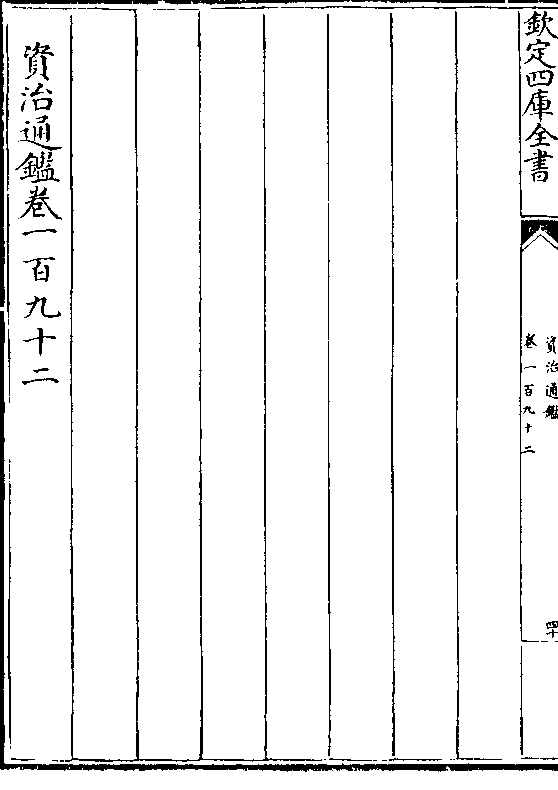 欽定四庫全書
資治通鑑
卷一百九十二
四十
資治通鑑卷一百九十二